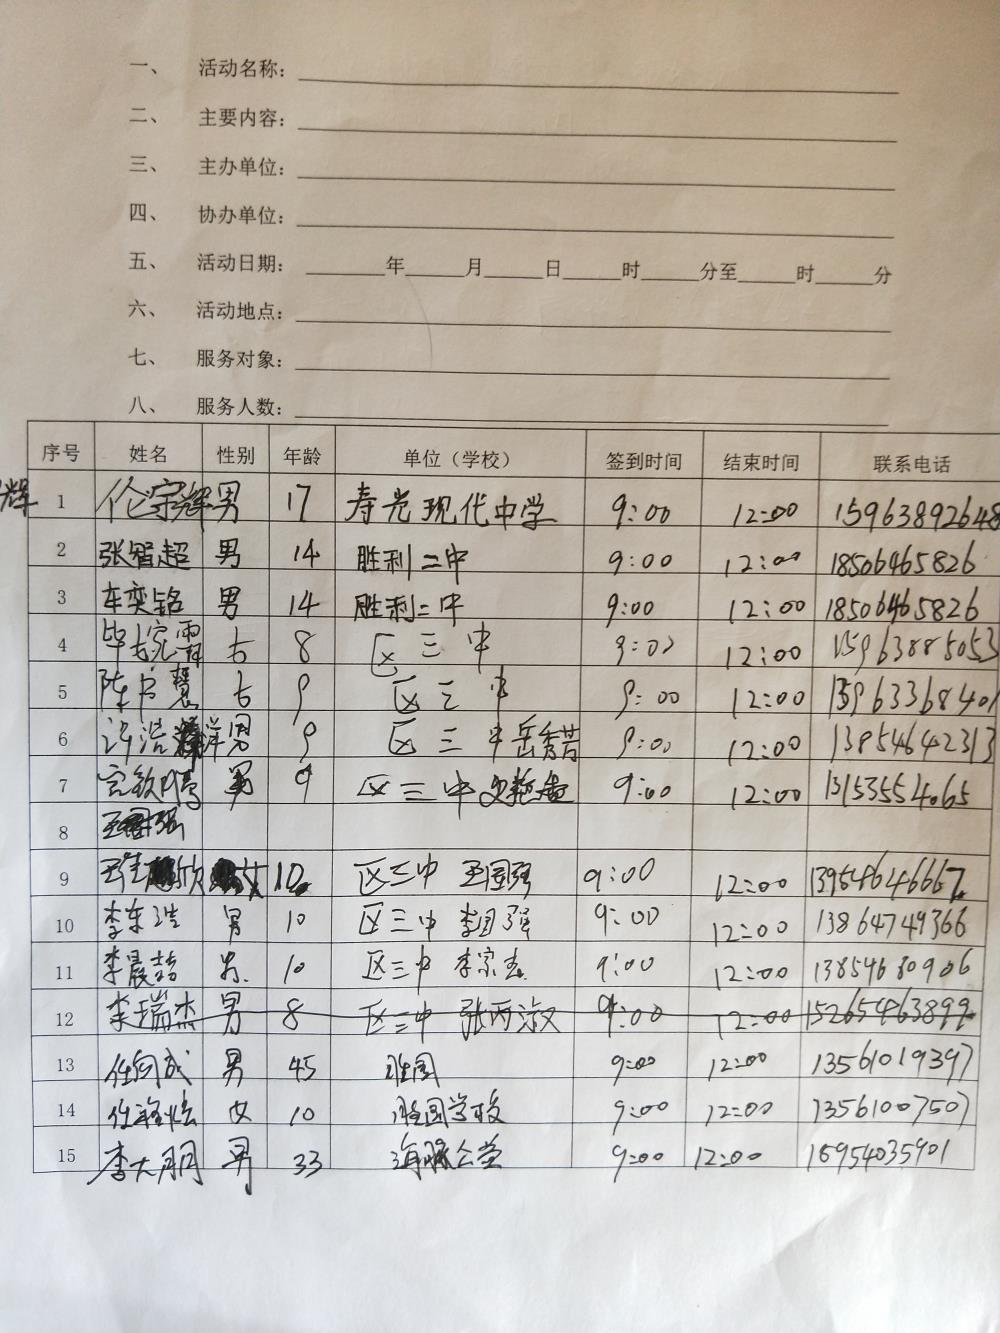 一、 活动名称：
二、 主要内容：
三、 主办单位：
四、 协办单位：
五、 活动日期： 年 月 日 时 分至 时 分
六、 活动地点：
七、 服务对象：
八、 服务人数：
序号 姓名 性别 年龄 单位（学校） 签到时间 结束时间 联系电话
辉 1 伦宗辉 男 17 寿光现代中学 9:00 12:00 15963892648
2 张智超 男 14 胜利二中 9:00 12:00 18506465826
3 车奕铭 男 14 胜利二中 9:00 12:00 18506465826
4 毕婉霏 女 8 区三中 9:00 12:00 15963885053
5 陈书慧 女 9 区三中 9:00 12:00 15963368401
6 许浩洋 男 9 区三中岳秀芳 9:00 12:00 13854642313
7 男 9 区三中 9:00 12:00 13153554065
8
9 王佳欣 女 10 区三中 王国强 9:00 12:00 13954646667
10 李东浩 男 10 区三中 李国强 9:00 12:00 13864749366
11 李晨喆 男 10 区三中 李宗 9:00 12:00 13854680906
12 李瑞杰 男 8 区三中 张丙淑 9:00 12:00 15265463899
13 任向成 男 45 胜园 9:00 12:00 13561019397
14 任 女 10 胜园学校 9:00 12:00 13561007507
15 李大朋 男 33 海豚公益 9:00 12:00 18954035901